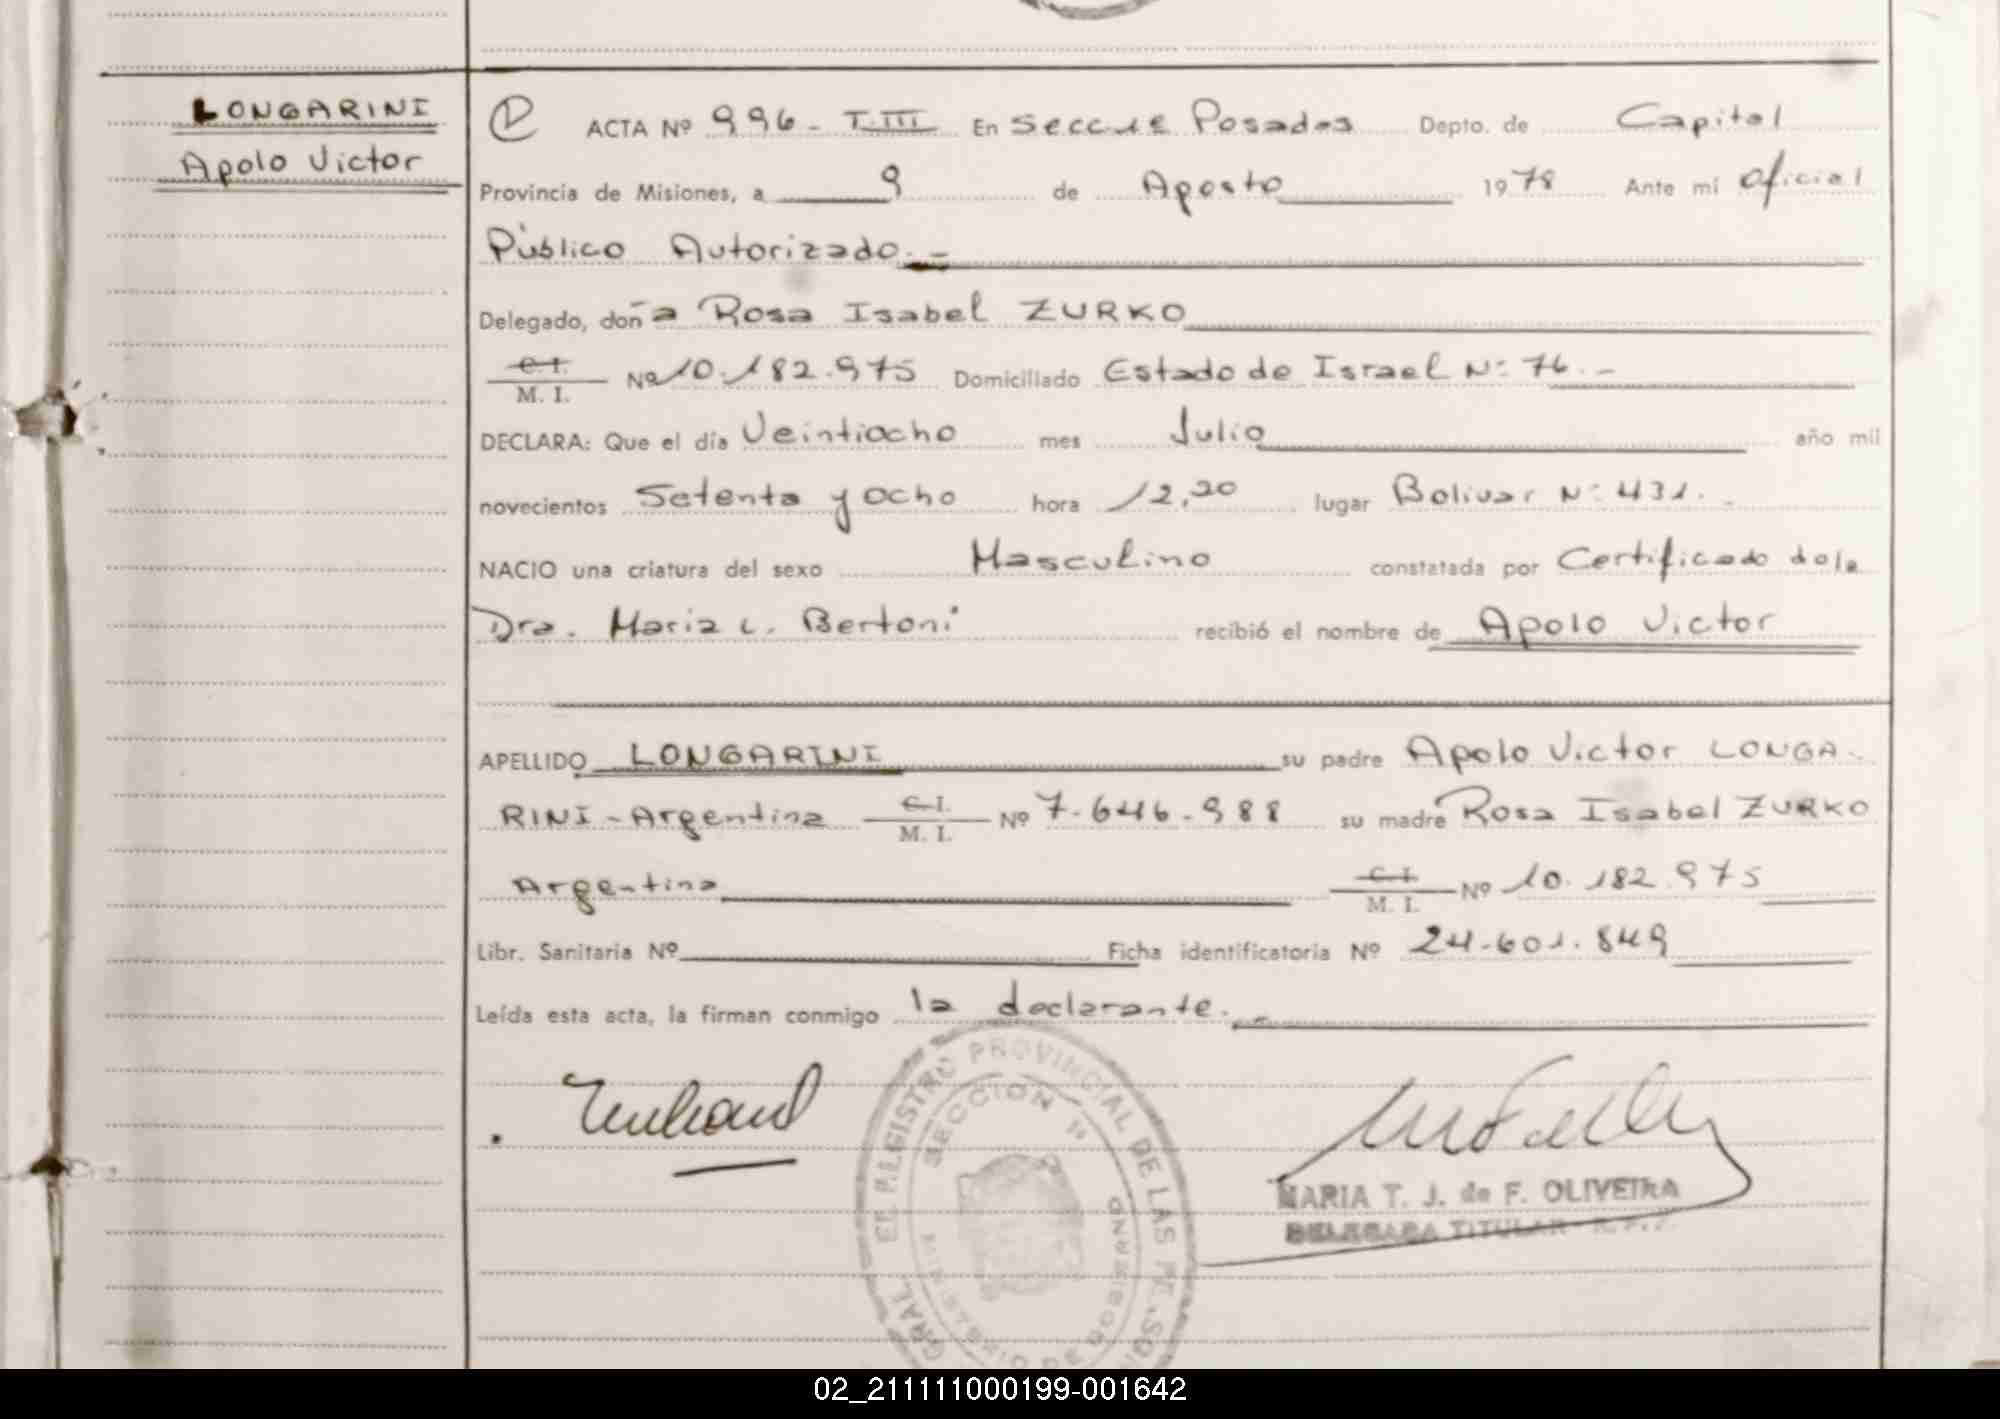 LONGARINI
Apolo Victor
ACTA Nº 996 - T. III En Secc 1ª Posadas Depto. de Capital
Provincia de Misiones, a 9 de Agosto 1978 Ante mí Oficial
Público Autorizado.-
Delegado, doña Rosa Isabel ZURKO
C.I.
M. I. Nº 10.182.975 Domiciliado Estado de Israel Nº 76.-
DECLARA: Que el día Veintiocho mes Julio año mil
novecientos Setenta y ocho hora 12,20 lugar Bolivar Nº 431.-
NACIO una criatura del sexo Masculino constatada por Certificado de la
Dra. Maria L. Bertoni recibió el nombre de Apolo Victor
APELLIDO LONGARINI su padre Apolo Victor LONGA-
RINI - Argentina C.I. M. I. Nº 7.646.988 su madre Rosa Isabel ZURKO
Argentina C.I. M. I. Nº 10.182.975
Libr. Sanitaria Nº Ficha identificatoria Nº 24.601.849
Leída esta acta, la firman conmigo la declarante.-
REGISTRO PROVINCIAL DE LAS PERSONAS
SECCION 1ª
MINISTERIO DE GOBIERNO
MARIA T. J. de F. OLIVEIRA
DELEGADA TITULAR
02_211111000199-001642